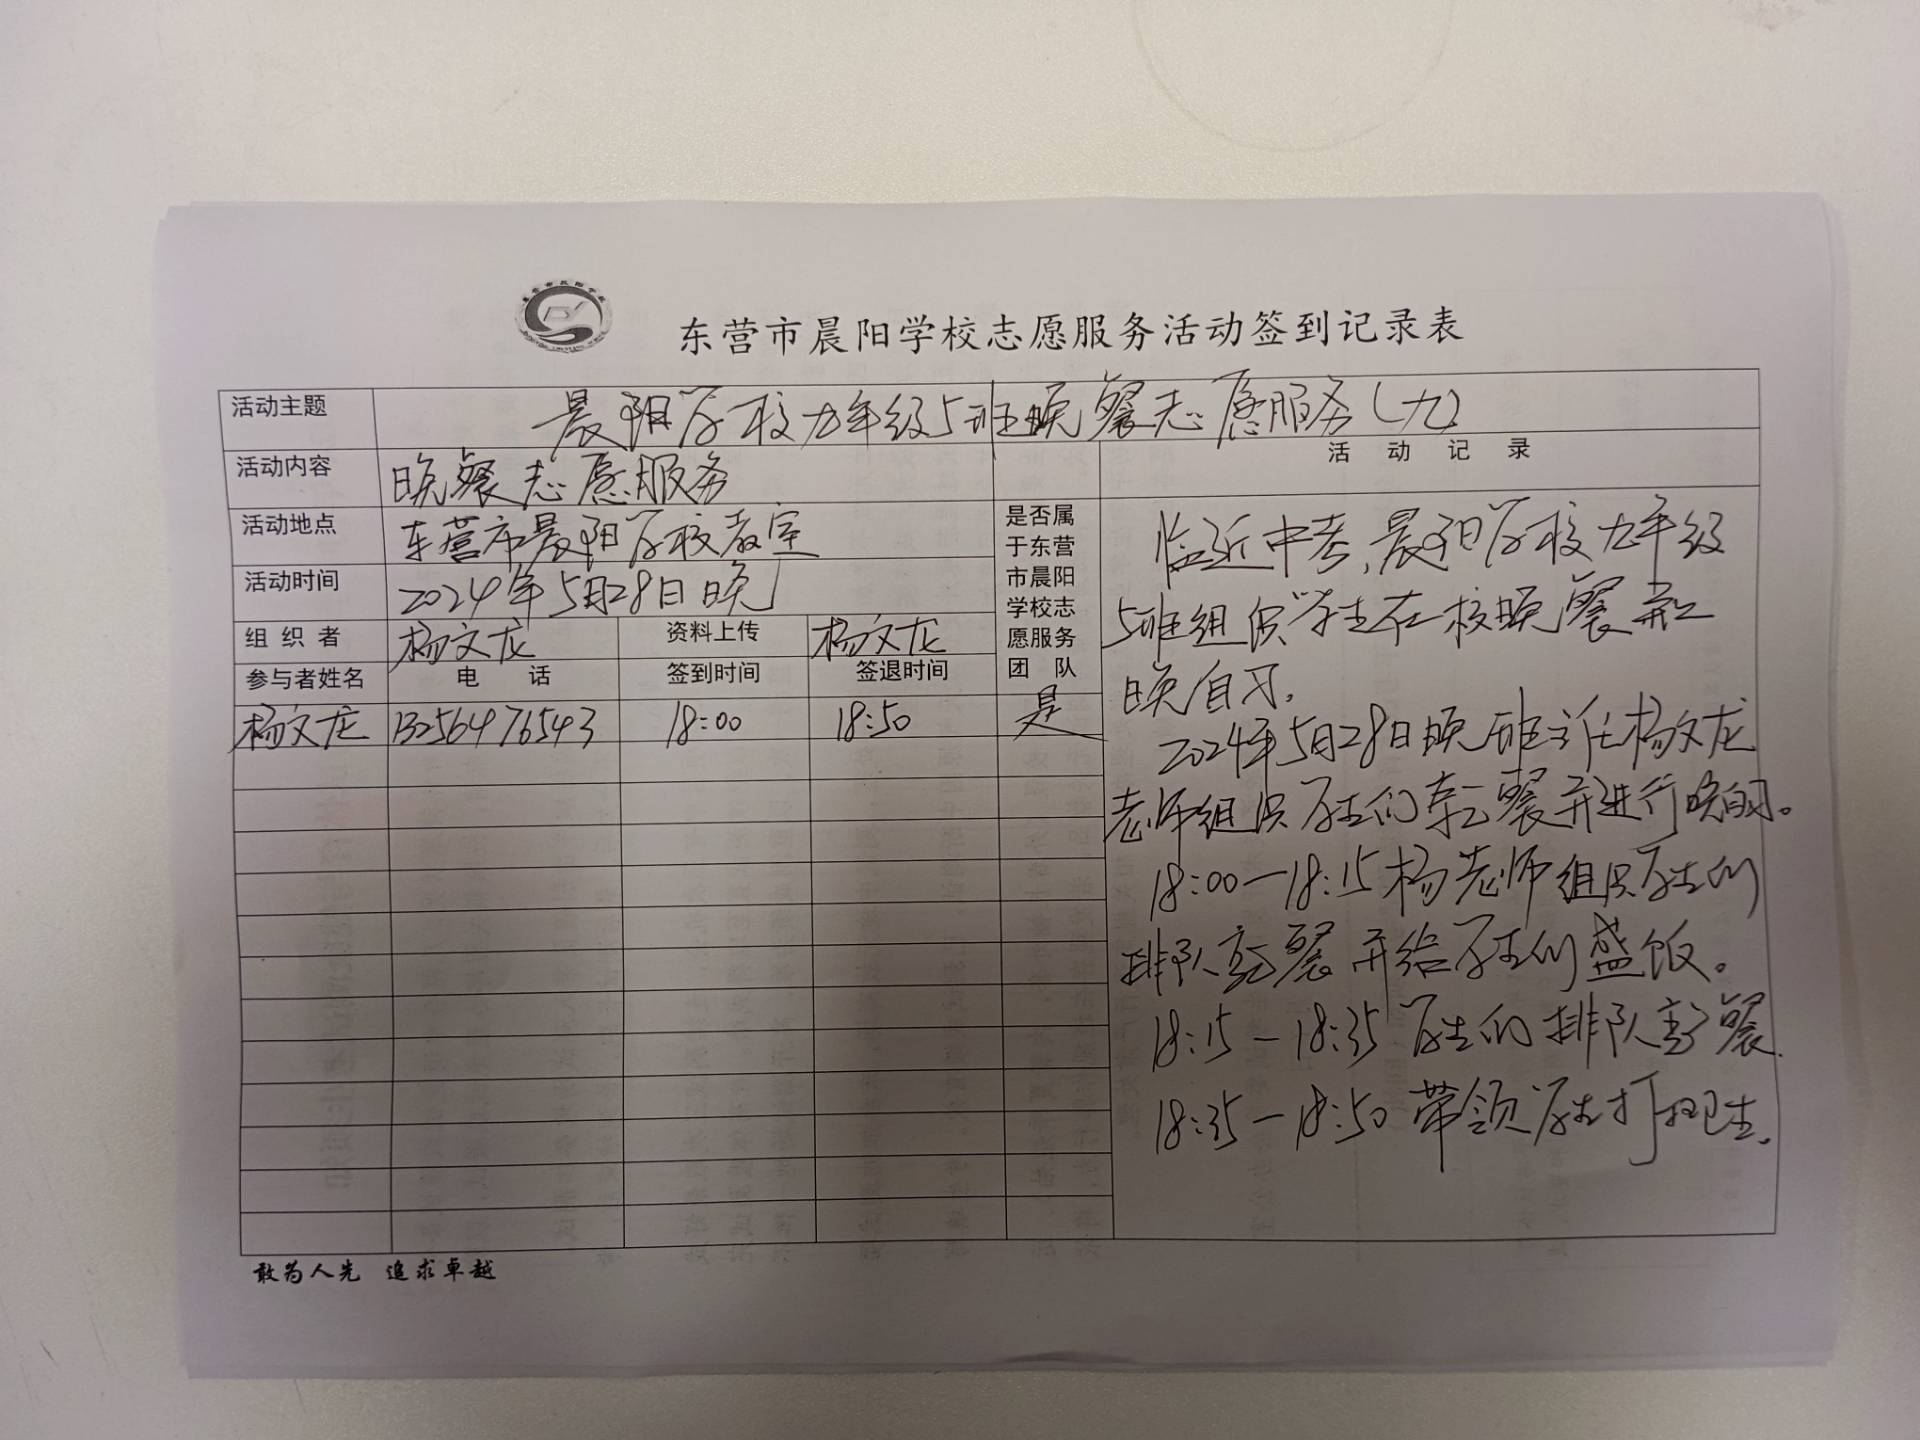 东营市晨阳学校志愿服务活动签到记录表
活动主题 晨阳学校九年级5班晚餐志愿服务(九)
活动内容 晚餐志愿服务
活动地点 东营市晨阳学校教室
活动时间 2024年5月28日晚
组织者 杨文龙 资料上传 杨文龙
参与者姓名 电话 签到时间 签退时间
是否属
于东营
市晨阳
学校志
愿服务
团队
杨文龙 13256476543 18:00 18:50 是
活动记录
临近中考,晨阳学校九年级
5班组织学生在校晚餐并上
晚自习。
2024年5月28日晚班主任杨文龙
老师组织学生们享受餐并进行晚自习。
18:00—18:15 杨老师组织学生们
排队就餐并给学生们盛饭。
18:15—18:35 学生们排队就餐.
18:35—18:50 带领学生打扫卫生.
敢为人先 追求卓越